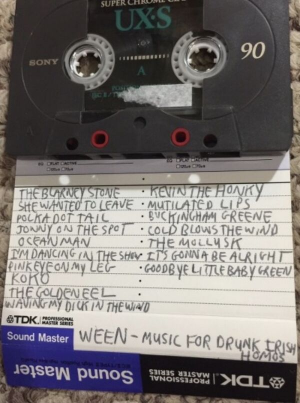 SUPER CHROME
UX·S
SONY
90
A
THE BLARNEY STONE · KEVIN THE HONKY
SHE WANTED TO LEAVE · MUTILATED LIPS
POLKA DOT TAIL · BUCKINGHAM GREENE
JOHNNY ON THE SPOT · COLD BLOWS THE WIND
OCEAN MAN · THE MOLLUSK
I'M DANCING IN THE SHOW · IT'S GONNA BE ALRIGHT
PINK EYE ON MY LEG · GOODBYE LITTLE BABY GREEN
KOKO
THE GOLDEN EEL
WAVING MY DICK IN THE WIND
TDK PROFESSIONAL MASTER SERIES
Sound Master WEEN - MUSIC FOR DRUNK IRISH
HOMOS
TDK PROFESSIONAL MASTER SERIES
Sound Master